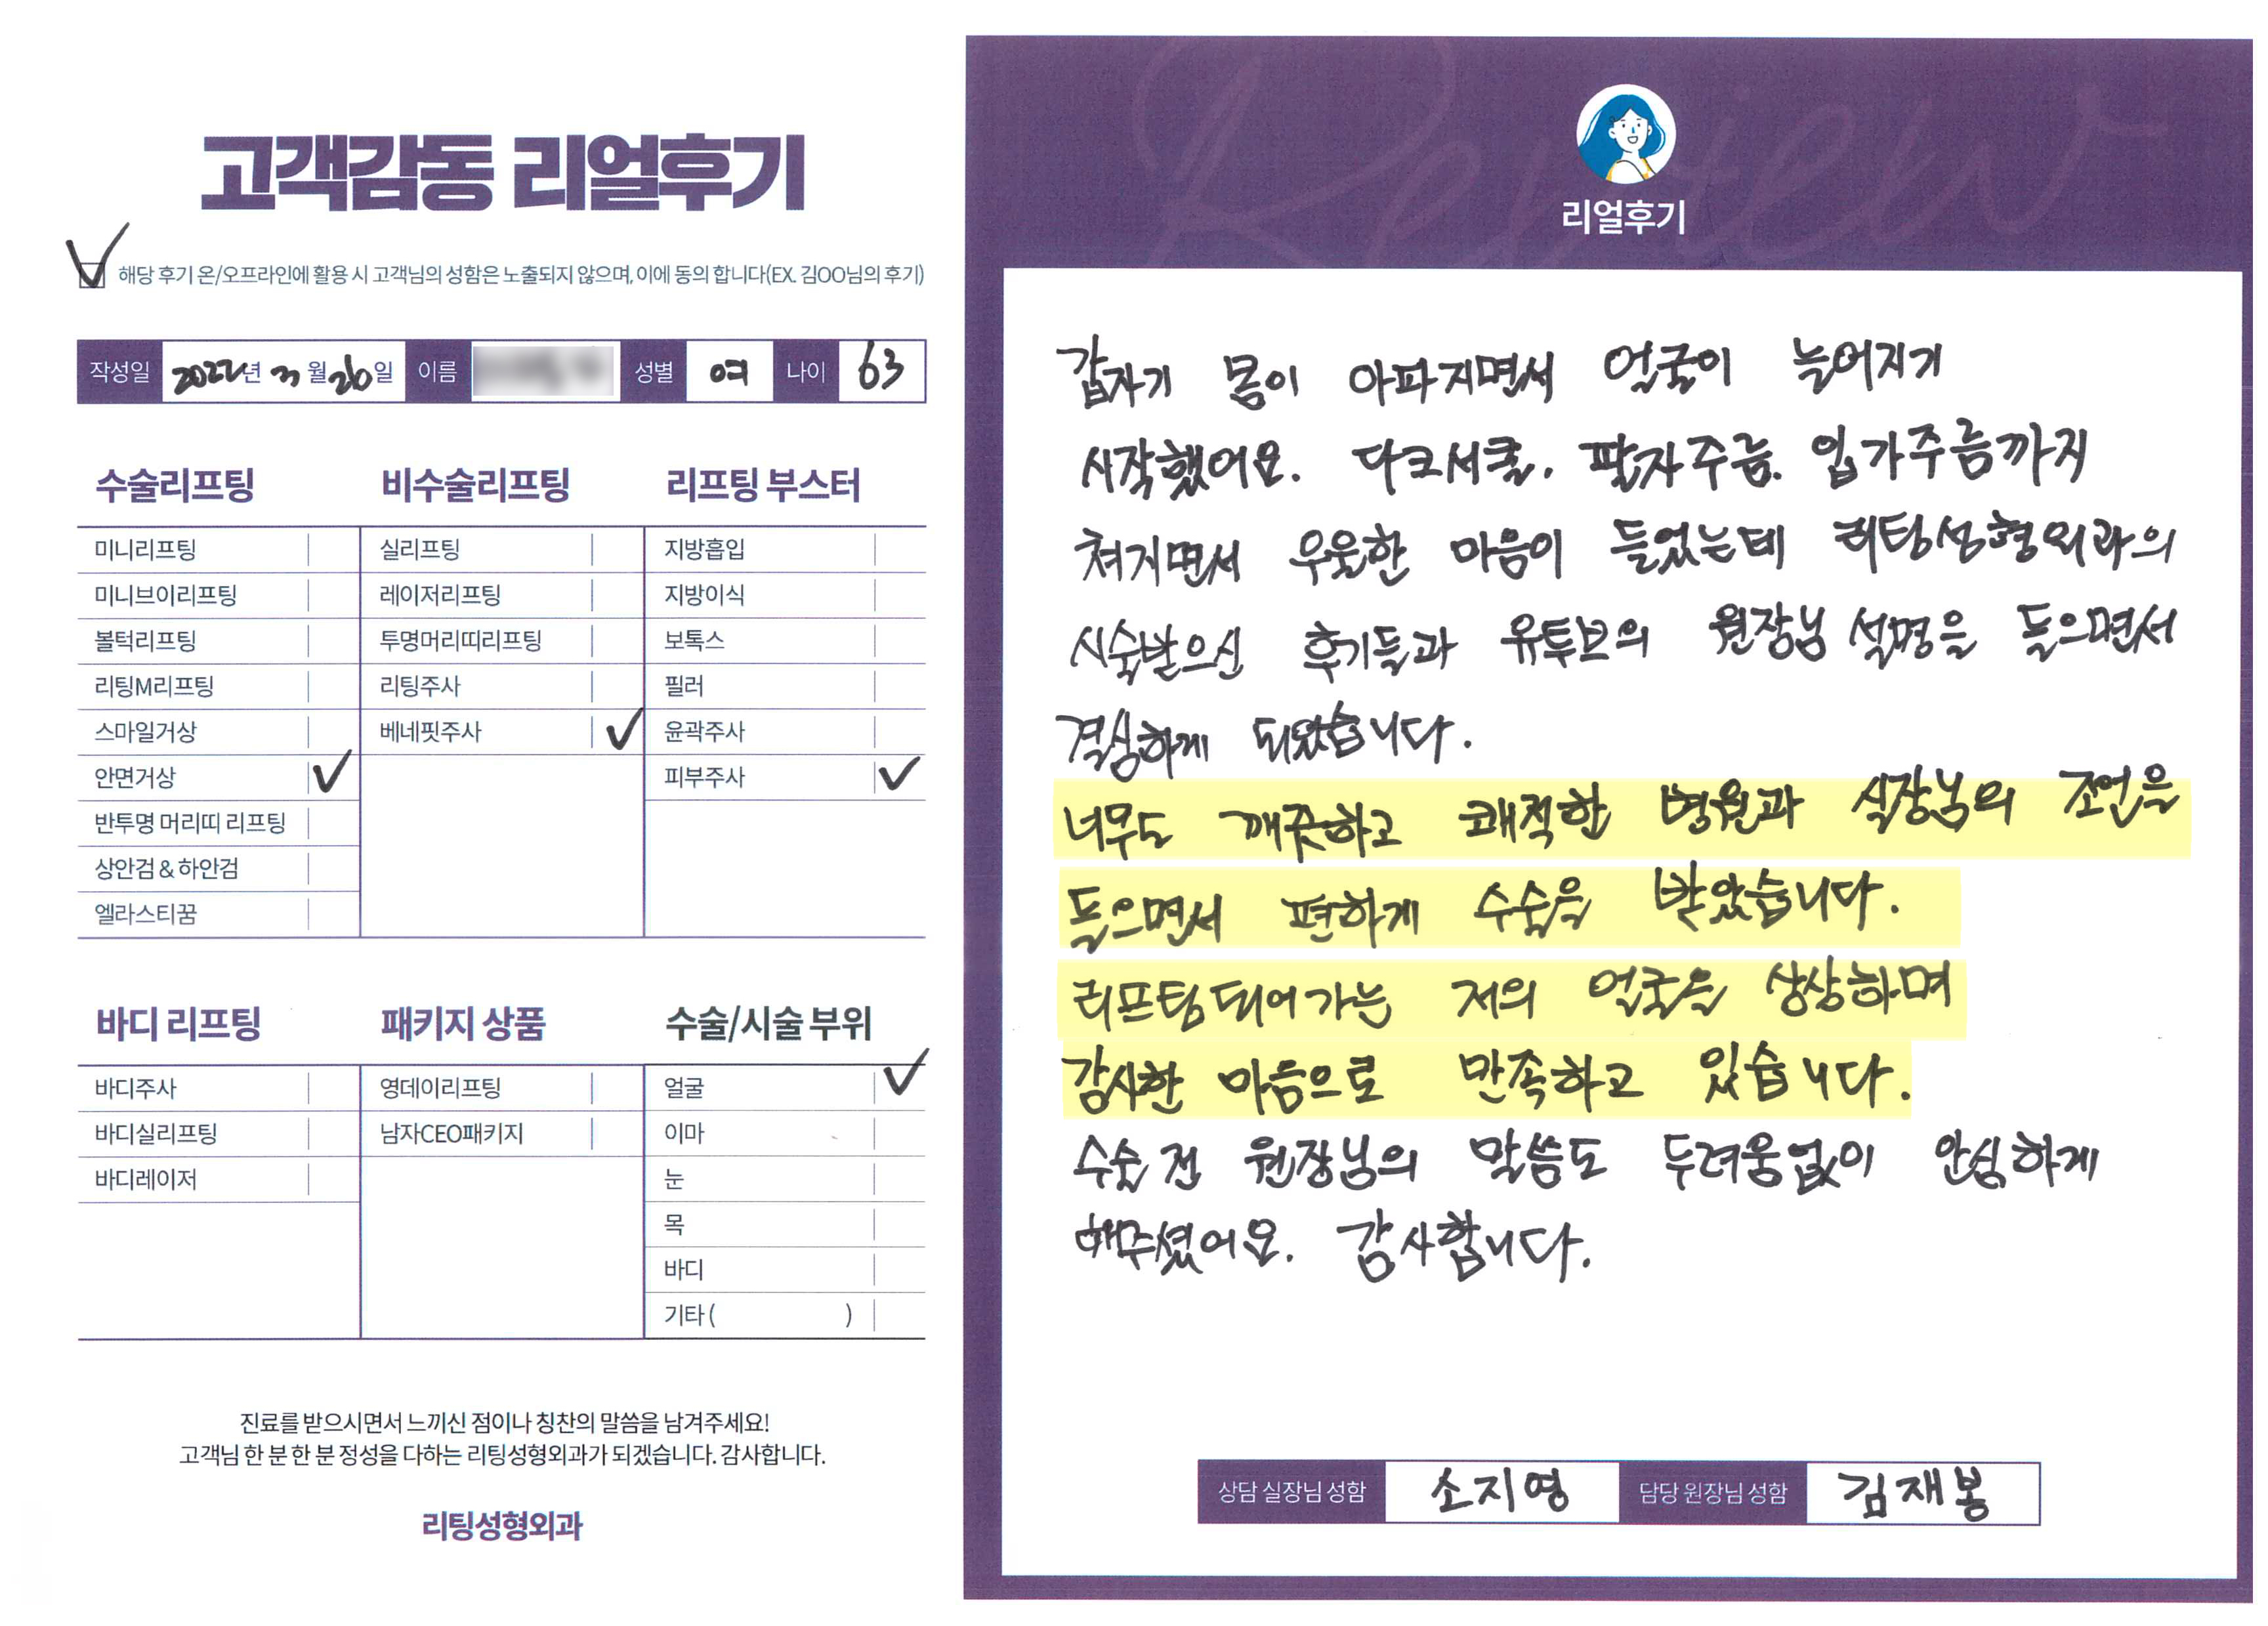 고객감동 리얼후기
해당 후기 온/오프라인에 활용 시 고객님의 성함은 노출되지 않으며, 이에 동의 합니다(EX. 김OO님의 후기)
작성일 2022년 3월 26일 이름 성별 여 나이 63
수술리프팅
미니리프팅
미니브이리프팅
볼턱리프팅
리팅M리프팅
스마일거상
안면거상 ✓
반투명 머리띠 리프팅
상안검 & 하안검
엘라스티꿈
비수술리프팅
실리프팅
레이저리프팅
투명머리띠리프팅
리팅주사
베네핏주사 ✓
리프팅 부스터
지방흡입
지방이식
보톡스
필러
윤곽주사
피부주사 ✓
바디 리프팅
바디주사
바디실리프팅
바디레이저
패키지 상품
영데이리프팅
남자CEO패키지
수술/시술 부위
얼굴 ✓
이마
눈
목
바디
기타 ( )
진료를 받으시면서 느끼신 점이나 칭찬의 말씀을 남겨주세요!
고객님 한 분 한 분 정성을 다하는 리팅성형외과가 되겠습니다. 감사합니다.
리팅성형외과
Review
리얼후기
갑자기 몸이 아파지면서 얼굴이 늘어지기
시작했어요. 다크서클. 팔자주름. 입가주름까지
쳐지면서 우울한 마음이 들었는데 리팅성형외과의
시술받으신 후기들과 유투브의 원장님 설명을 들으면서
결심하게 되었습니다.
너무도 깨끗하고 쾌적한 병원과 실장님의 조언을
들으면서 편하게 수술을 받았습니다.
리프팅되어가는 저의 얼굴을 상상하며
감사한 마음으로 만족하고 있습니다.
수술 전 원장님의 말씀도 두려움없이 안심하게
해주셨어요. 감사합니다.
상담 실장님 성함 소지영 담당 원장님 성함 김재봉